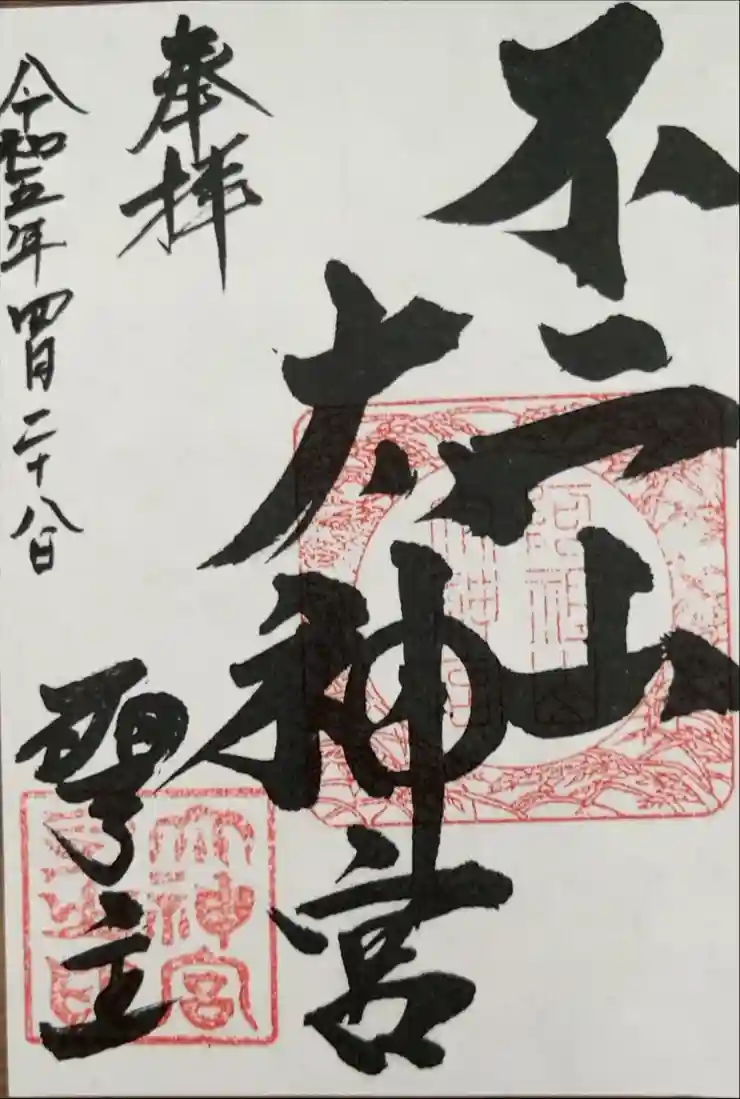 不二山
大神宮
奉拝
令和五年四月二十八日
大神宮